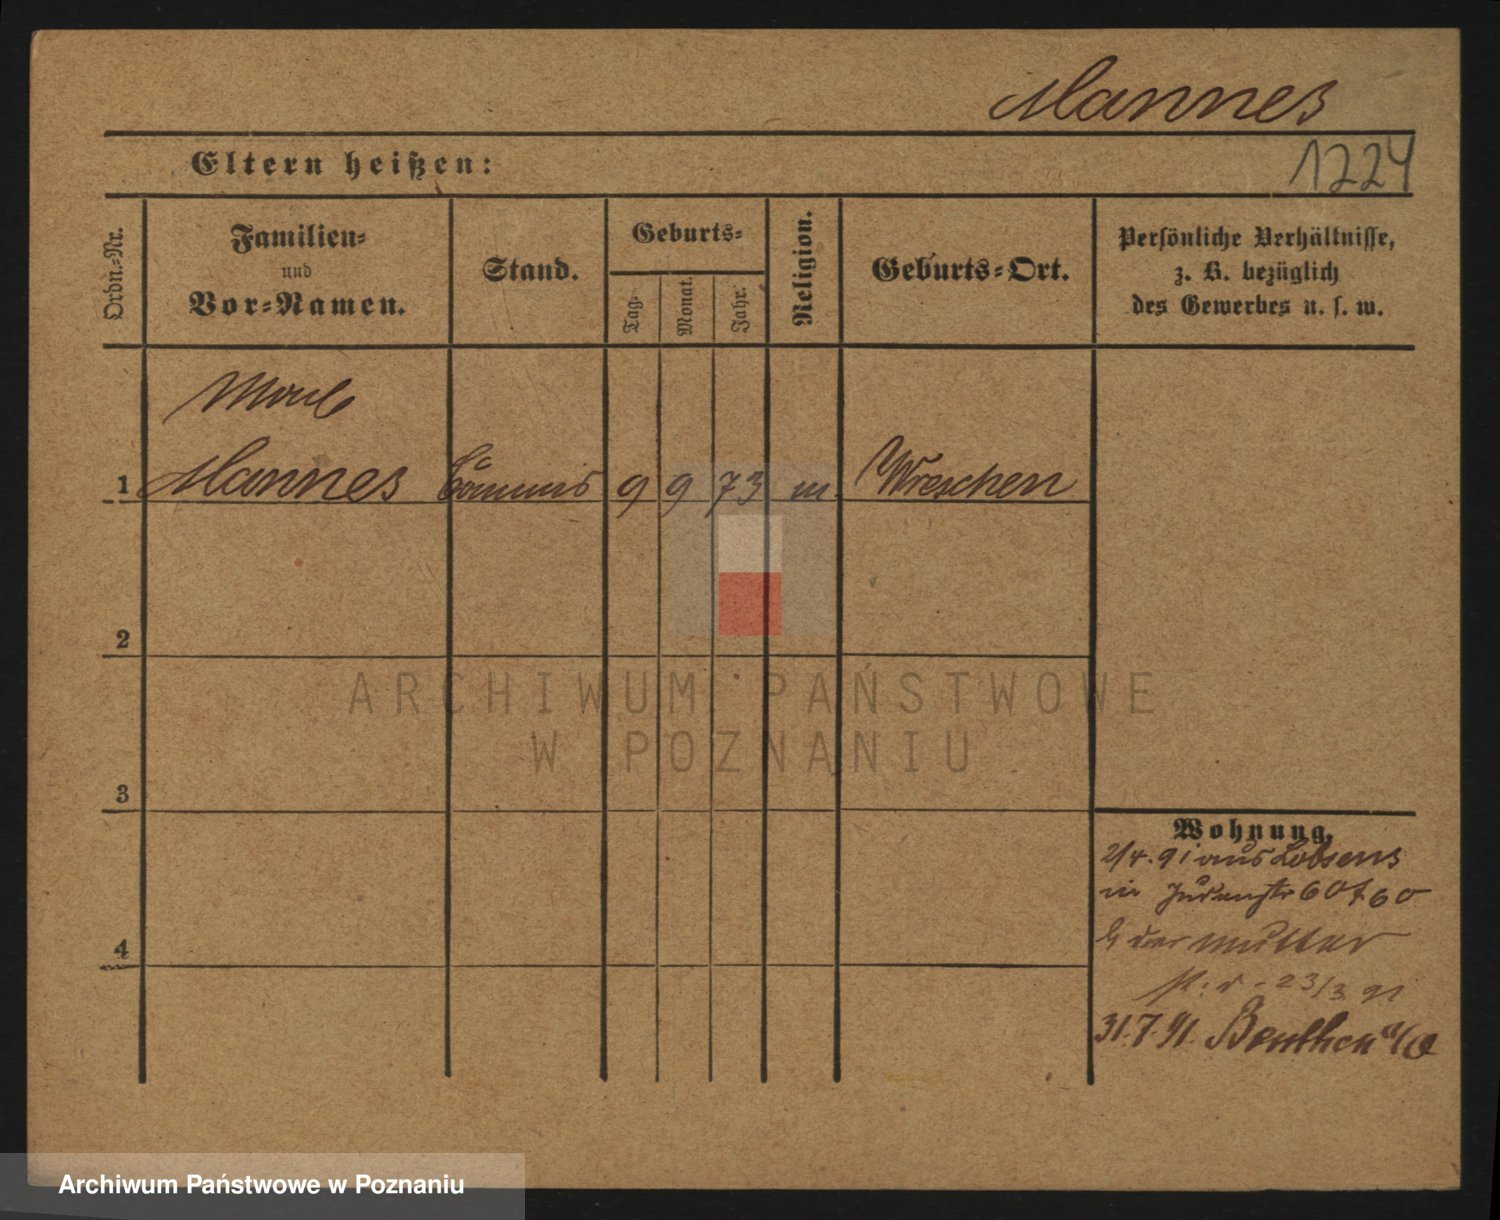 Mannes
Eltern heißen:
1224
Ordn.-Nr.
Familien-
und
Vor-Namen.
Stand.
Geburts-
Tag.
Monat.
Jahr.
Religion.
Geburts-Ort.
Persönliche Verhältnisse,
z. B. bezüglich
des Gewerbes u. s. w.
1 Mannes Commis 9 9 73 m. Wreschen
2
3
4
Wohnung.
2/4. 91 aus Lobsens
in Judenstr 60
b der Mutter
23/3 91
31.7.91. Beuthen a/O
ARCHIWUM PAŃSTWOWE
W POZNANIU
Archiwum Państwowe w Poznaniu